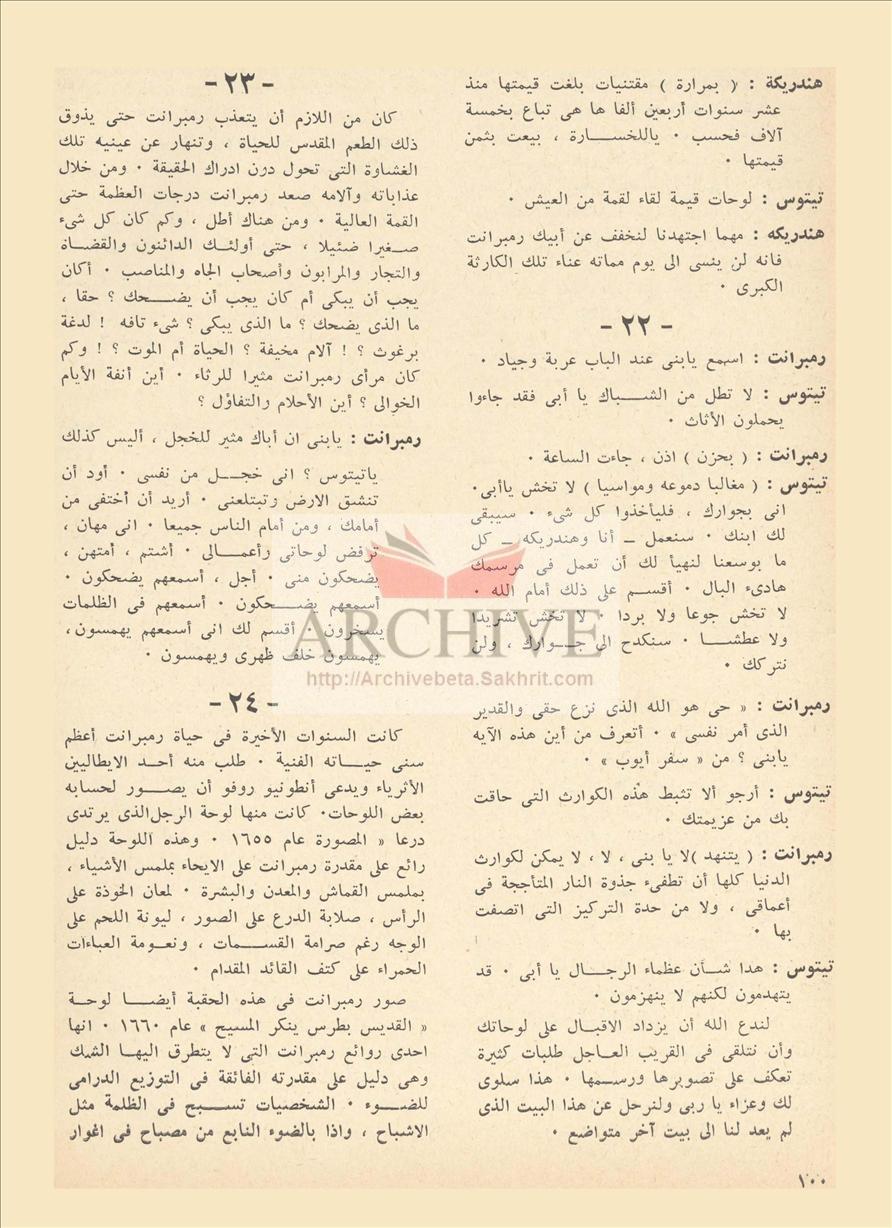 هندريكة : ( بمرارة ) مقتنيات بلغت قيمتها منذ
عشر سنوات أربعين ألفا ها هى تباع بخمسة
آلاف فحسب ٠ ياللخســـارة ، بيعت بثمن
قيمتها ٠
تيتوس : لوحات قيمة لقاء لقمة من العيش ٠
هندريكه : مهما اجتهدنا لنخفف عن أبيك رمبرانت
فانه لن ينسى الى يوم مماته عناء تلك الكارثة
الكبرى ٠
- ٢٢ -
رمبرانت : اسمع يابنى عند الباب عربة وجياد ٠
تيتوس : لا تطل من الشـــباك يا أبى فقد جاءوا
يحملون الأثاث ٠
رمبرانت : ( بحزن ) اذن ، جاءت الساعة ٠
تيتوس : ( مغالبا دموعه ومواسيا ) لا تخش ياأبى٠
انى بجوارك ، فليأخذوا كل شىء ٠ سيبقى
لك ابنك ٠ سنعمل ــ أنا وهندريكه ــ كل
ما بوسعنا لنهيأ لك أن تعمل فى مرسمك
هادىء البال ٠ أقســم على ذلك أمام الله ٠
لا تخش جوعا ولا بردا ٠ لا تخش تشريدا
ولا عطشـــا ٠ سنكدح الى جـــوارك ، ولن
نتركك ٠
رمبرانت : « حى هو الله الذى نزع حقى والقدير
الذى أمر نفسى » ٠ أتعرف من أين هذه الآيه
يابنى ؟ من « سفر أيوب » ٠
تيتوس : أرجو ألا تثبط هذه الكوارث التى حاقت
بك من عزيمتك ٠
رمبرانت : ( يتنهد )لا يا بنى ، لا ، لا يمكن لكوارث
الدنيا كلها أن تطفىء جذوة النار المتأججة فى
أعماقى ، ولا من حدة التركيز التى اتصفت
بها ٠
تيتوس : هدا شــأن عظماء الرجــال يا أبى ٠ قد
يتهدمون لكنهم لا ينهزمون ٠
لندع الله أن يزداد الاقبـال على لوحاتك
وأن نتلقى فى القريب العـاجل طلبات كثيرة
تعكف على تصويرها ورســمها ٠ هذا سلوى
لك وعزاء يا ربى ولنرحل عن هذا البيت الذى
لم يعد لنا الى بيت آخر متواضع ٠
- ٢٣ -
كان من اللازم أن يتعذب رمبرانت حتى يذوق
ذلك الطعم المقدس للحياة ، وتنهار عن عينيه تلك
الغشاوة التى تحول درن ادراك الحقيقة ٠ ومن خلال
عذاباته وآلامه صعد رمبرانت درجات العظمة حتى
القمة العالية ٠ ومن هناك أطل ، وكم كان كل شىء
صــغيرا ضئيلا ، حتى أولئــك الدائنون والقضــاة
والتجار والمرابون وأصحاب الجاه والمناصب ٠ أكان
يجب أن يبكى أم كان يجب أن يضـــحك ؟ حقا ،
ما الذى يضحك ؟ ما الذى يبكى ؟ شىء تافه ! لدغة
برغوث ؟ ! آلام مخيفة ؟ الحياة أم الموت ؟ ! وكم
كان مرأى رمبرانت مثيرا للرثاء ٠ أين أنفة الأيام
الخوالى ؟ أين الأحلام والتفاؤل ؟
رمبرانت : يابنى ان أباك مثير للخجل ، أليس كذلك
ياتيتوس ؟ انى خجـــل من نفسى ٠ أود أن
تنشق الارض وتبتلعنى ٠ أريد أن أختفى من
أمامك ، ومن أمام الناس جميعا ٠ انى مهان ،
ترفض لوحاتى رأعمـــالى ٠ أشتم ، أمتهن ،
يضحكون منى ٠ أجل ، أسمعهم يضحكون ٠
أسمعهم يضـــحكون ٠ أسمعهم فى الظلمات
يسخرون ٠ أقسم لك انى أسمعهم يهمسون،
يهمسون خلف ظهرى ويهمسون ٠
- ٢٤ -
كانت السنوات الأخيرة فى حياة رمبرانت أعظم
سنى حيـــاته الفنية ٠ طلب منه أحــد الايطاليين
الأثرياء ويدعى أنطونيو روفو أن يصــور لحسابه
بعض اللوحات٠ كانت منها لوحة الرجل الذى يرتدى
درعا « المصورة عام ١٦٥٥ ٠ وهذه اللوحة دليل
رائع على مقدرة رمبرانت على الايحاء بملمس الأشياء ،
بملمس القماش والمعدن والبشرة ٠ لمعان الخوذة على
الرأس ، صلابة الدرع على الصور ، ليونة اللحم على
الوجه رغم صرامة القســـمات ، ونعــومة العباءات
الحمراء على كتف القائد المقدام ٠
صور رمبرانت فى هذه الحقبة أيضـــا لوحــة
« القديس بطرس ينكر المسيح » عام ١٦٦٠ ٠ انها
احدى روائع رمبرانت التى لا يتطرق اليهــا الشك
وهى دليل على مقدرته الفائقة فى التوزيع الدرامى
للضــوء ٠ الشخصيات تســبح فى الظلمة مثل
الاشباح ، واذا بالضوء النابع من مصباح فى اغوار
١٠٠
ARCHIVE
http://Archivebeta.Sakhrit.com